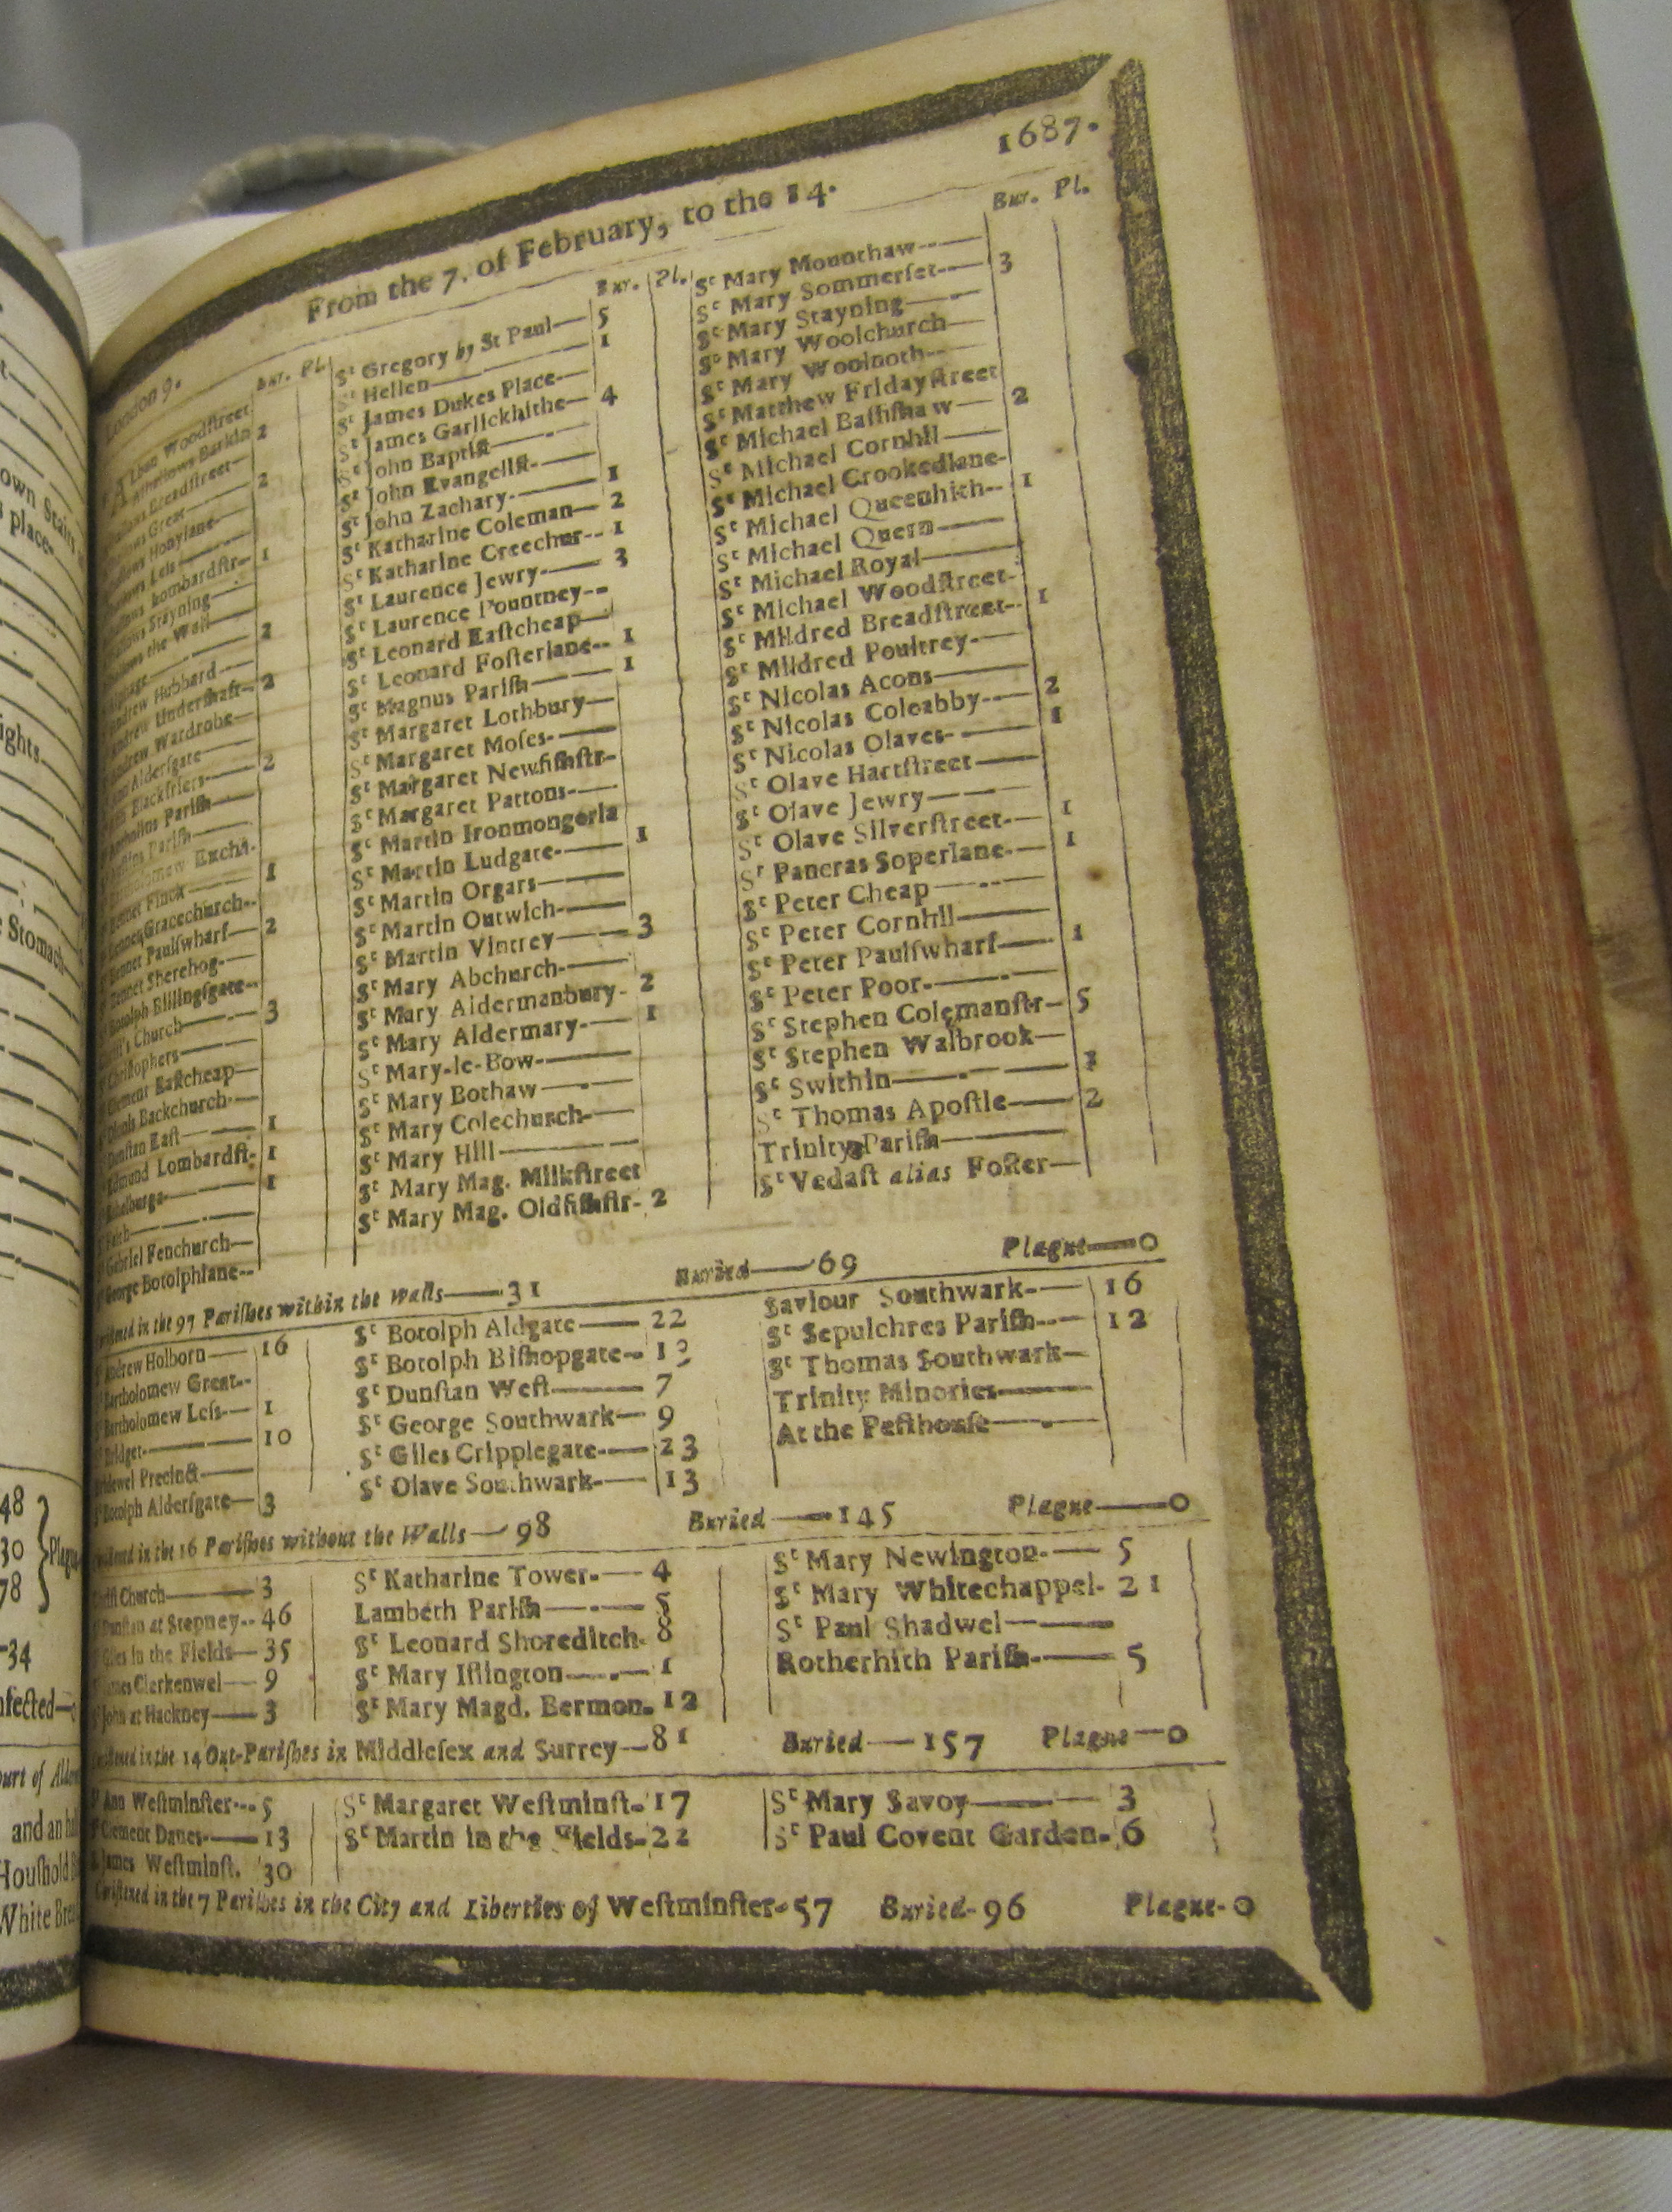 From the 7. of February, to the 14. 1687.
London 9.
Bur. Pl.
Woodstreet
Allhallows Barkin 2
Breadstreet—
Great— 2
Honylane—
Less—
Lombardstr— 1
Stayning—
the Wall—
2
Andrew Hubbard—
Andrew Undershaft— 2
Andrew Wardrobe—
Aldersgate—
Blackfriers— 2
Parish—
Parish—
Bartholomew Excha.
Bennet Finck— 1
Gracechurch--
Bennet Paulswharf— 2
Bennet Sherehog—
Botolph Billingsgate--
Church— 3
Christophers—
Clement Eastcheap—
Backchurch—
Dunstan East— 1
Edmund Lombardst- 1
Ethelburga— 1
Faith—
Gabriel Fenchurch—
George Botolphlane--
Bur. Pl.
Sᵗ Gregory by St Paul— 5
Sᵗ Hellen— 1
Sᵗ James Dukes Place—
Sᵗ James Garlickhithe— 4
Sᵗ John Baptist—
Sᵗ John Evangelist—
Sᵗ John Zachary— 1
Sᵗ Katharine Coleman— 2
Sᵗ Katharine Creechur-- 1
Sᵗ Laurence Jewry— 3
Sᵗ Laurence Pountney--
Sᵗ Leonard Eastcheap—
Sᵗ Leonard Fosterlane-- 1
Sᵗ Magnus Parish— 1
Sᵗ Margaret Lothbury—
Sᵗ Margaret Moses—
Sᵗ Margaret Newfishstr-
Sᵗ Margaret Pattons—
Sᵗ Martin Ironmongerla
Sᵗ Martin Ludgate— 1
Sᵗ Martin Orgars—
Sᵗ Martin Outwich—
Sᵗ Martin Vintrey— 3
Sᵗ Mary Abchurch—
Sᵗ Mary Aldermanbury- 2
Sᵗ Mary Aldermary— 1
Sᵗ Mary-le-Bow—
Sᵗ Mary Bothaw—
Sᵗ Mary Colechurch—
Sᵗ Mary Hill—
Sᵗ Mary Mag. Milkstreet
Sᵗ Mary Mag. Oldfishstr- 2
Bur. Pl.
Sᵗ Mary Mounthaw—
Sᵗ Mary Sommerset— 3
Sᵗ Mary Stayning—
Sᵗ Mary Woolchurch—
Sᵗ Mary Woolnoth—
Sᵗ Matthew Fridaystreet
Sᵗ Michael Bassishaw— 2
Sᵗ Michael Cornhil—
Sᵗ Michael Crookedlane-
Sᵗ Michael Queenhith-- 1
Sᵗ Michael Quern—
Sᵗ Michael Royal—
Sᵗ Michael Woodstreet-
Sᵗ Mildred Breadstreet-- 1
Sᵗ Mildred Poultrey—
Sᵗ Nicolas Acons—
Sᵗ Nicolas Coleabby— 2
Sᵗ Nicolas Olaves— 1
Sᵗ Olave Hartstreet—
Sᵗ Olave Jewry—
Sᵗ Olave Silverstreet— 1
Sᵗ Pancras Soperlane— 1
Sᵗ Peter Cheap—
Sᵗ Peter Cornhil—
Sᵗ Peter Paulswharf— 1
Sᵗ Peter Poor—
Sᵗ Stephen Colemanstr— 5
Sᵗ Stephen Walbrook—
Sᵗ Swithin—
Sᵗ Thomas Apostle— 2
Trinity Parish—
Sᵗ Vedast alias Foster—
in the 97 Parishes within the walls—31 Buried—69 Plague—0
Andrew Holborn— 16
Bartholomew Great--
Bartholomew Less— 1
Bridget— 10
Bridewel Precinct—
Botolph Aldersgate— 3
Sᵗ Botolph Aldgate— 22
Sᵗ Botolph Bishopgate--
Sᵗ Dunstan West— 7
Sᵗ George Southwark— 9
Sᵗ Giles Cripplegate— 23
Sᵗ Olave Southwark— 13
Saviour Southwark— 16
Sᵗ Sepulchres Parish— 12
Sᵗ Thomas Southwark—
Trinity Minories—
At the Pesthouse—
in the 16 Parishes without the Walls—98 Buried—145 Plague—0
Church— 3
Dunstan at Stepney-- 46
Giles in the Fields— 35
Clerkenwel— 9
John at Hackney— 3
Sᵗ Katharine Tower— 4
Lambeth Parish— 5
Sᵗ Leonard Shoreditch- 8
Sᵗ Mary Islington— 1
Sᵗ Mary Magd. Bermon. 12
Sᵗ Mary Newington— 5
Sᵗ Mary Whitechappel- 21
Sᵗ Paul Shadwel—
Rotherhith Parish— 5
in the 14 Out-Parishes in Middlesex and Surrey—81 Buried—157 Plague—0
Ann Westminster--- 5
Clement Danes— 13
James Westminst. 30
Sᵗ Margaret Westminst- 17
Sᵗ Martin in the Fields- 22
Sᵗ Mary Savoy— 3
Sᵗ Paul Covent Garden- 6
Christened in the 7 Parishes in the City and Liberties of Westminster-57 Buried-96 Plague-0